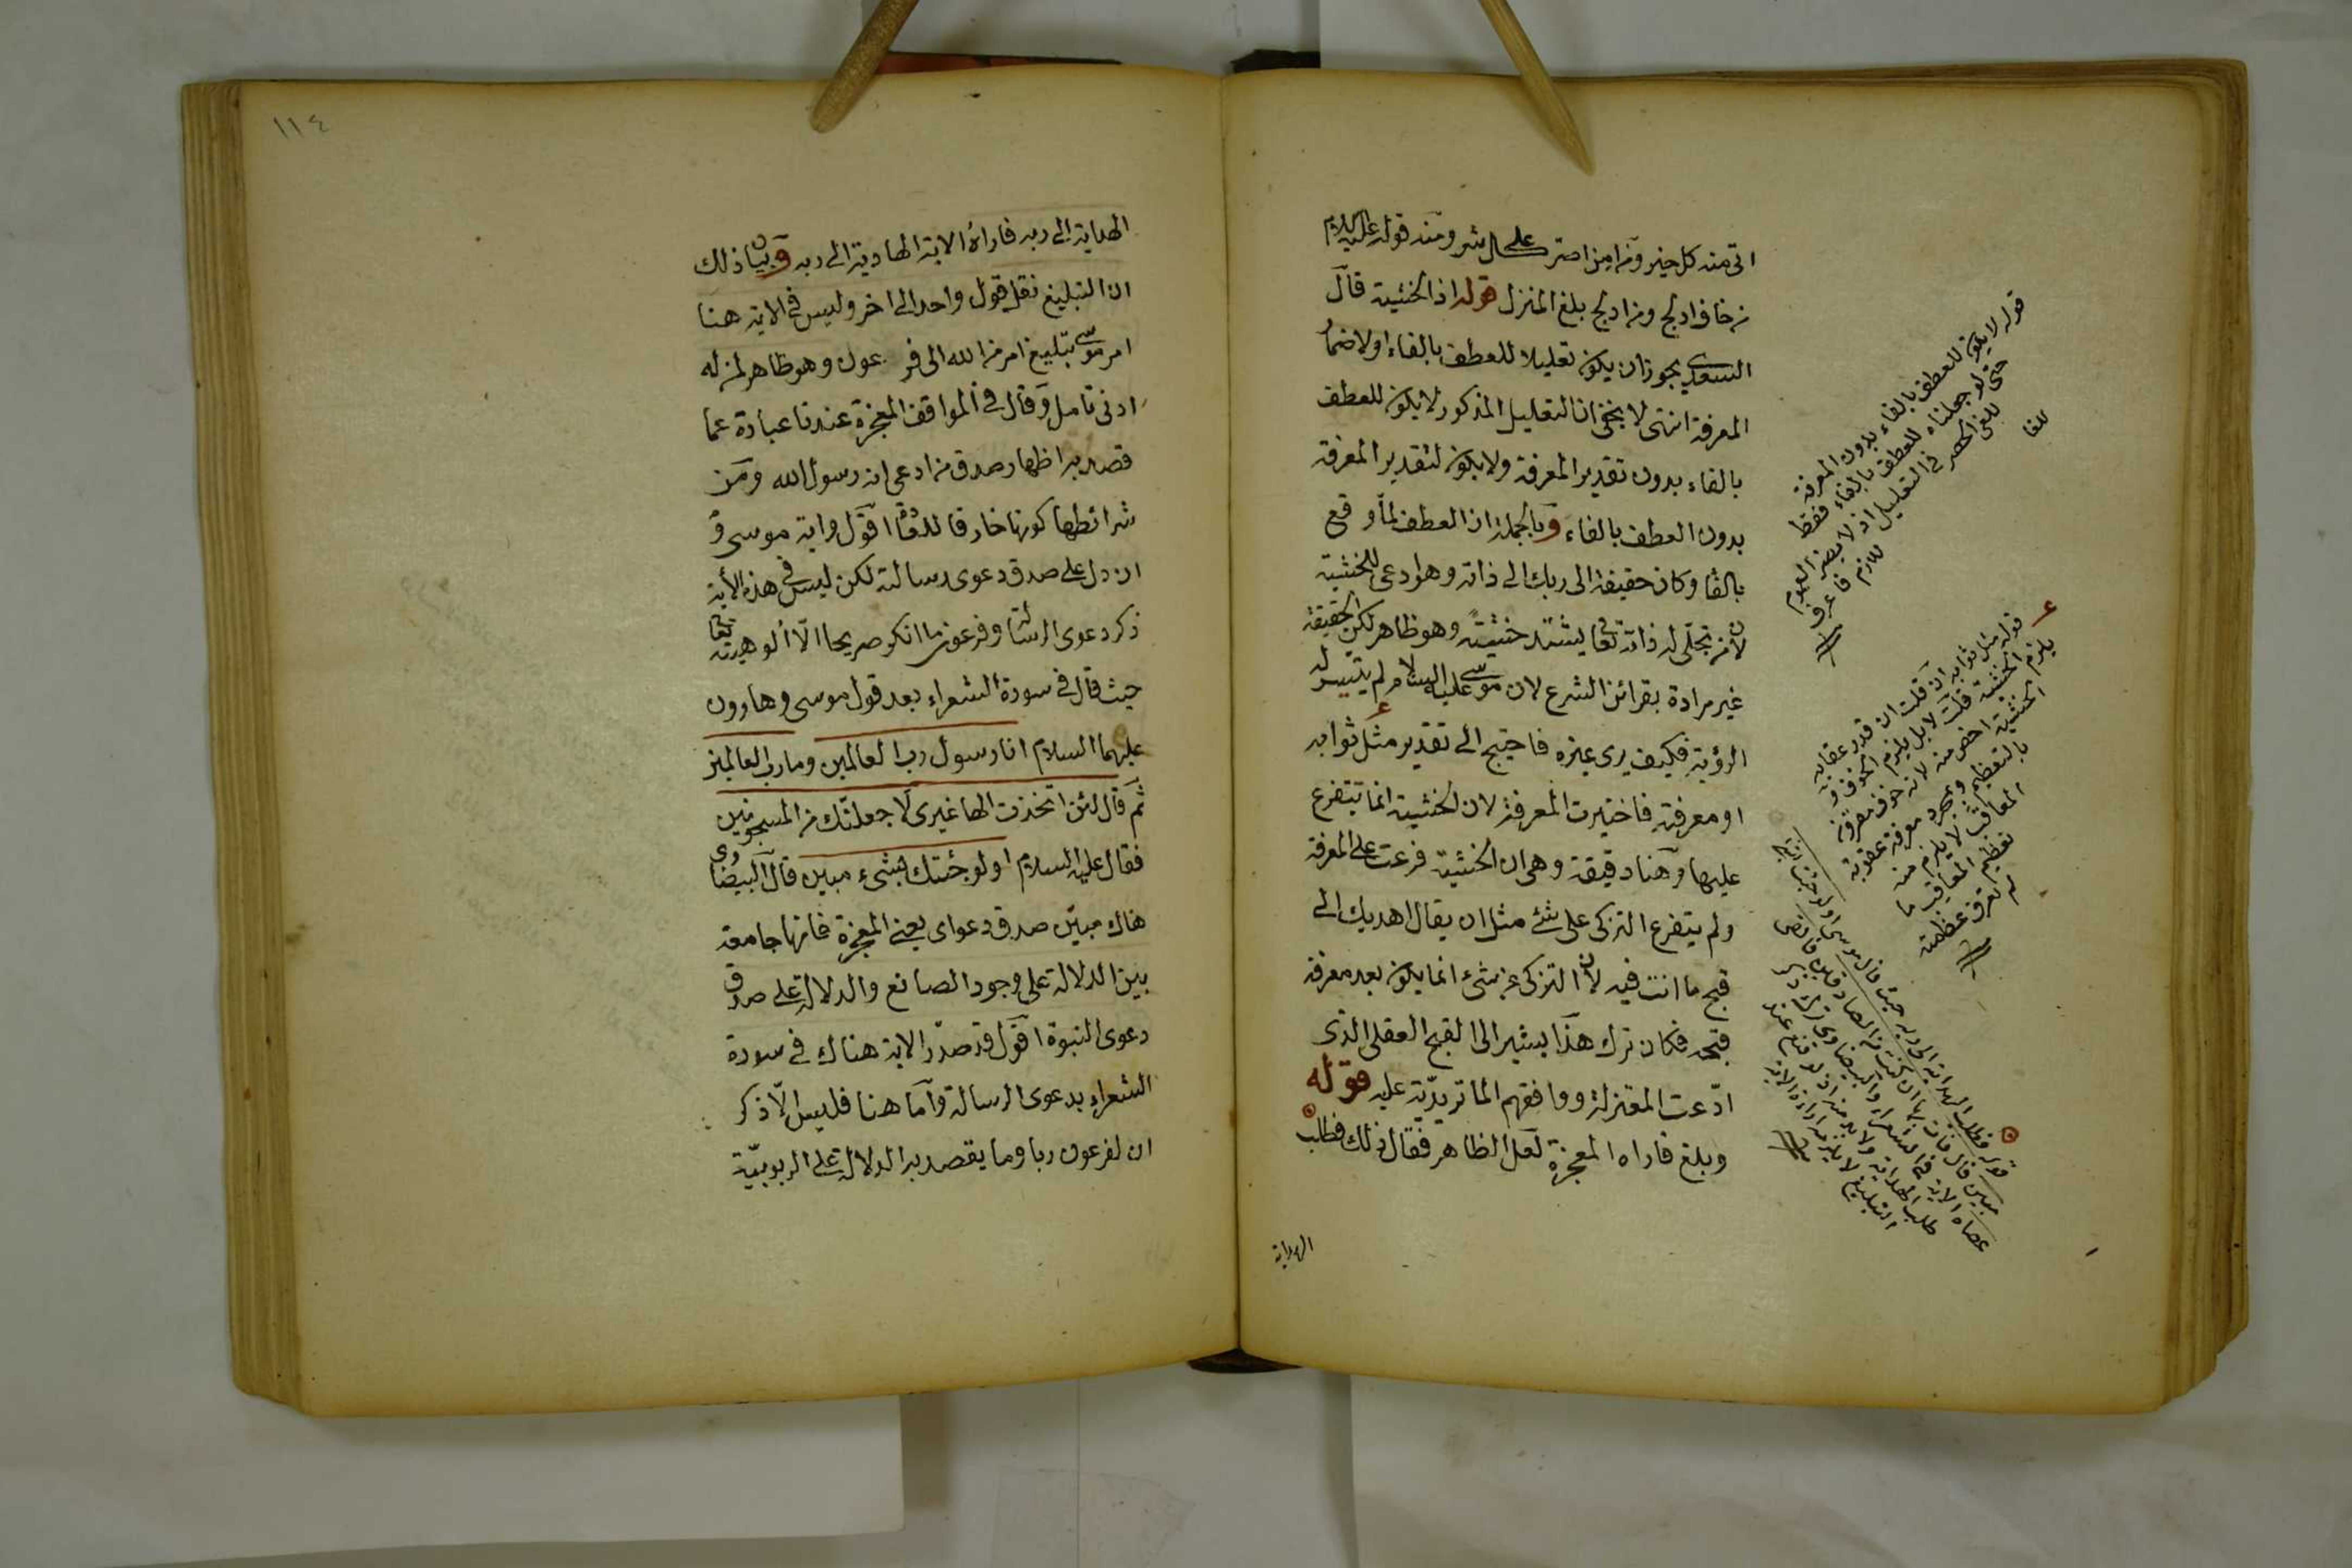 اتى منه كل خير ومن امن اجترء على كل شر ومنه قوله عليه السلام
من خاف ادلج ومن ادلج بلغ المنزل قوله اذ الخشية قال
السعدي يجوز ان يكون تعليلا للعطف بالفاء اولا ضمار
المعرفة انتهى لا يخفى ان التعليل المذكور لا يكون للعطف
بالفاء بدون تقدير المعرفة ولا يكون لتقدير المعرفة
بدون العطف بالفاء وبالجملة ان العطف لما وقع
بالفا وكان حقيقة الى ربك الى ذاته وهو ادعى للخشية
لان من تجلى له ذاته تعالى يشتد خشيته وهو ظاهر لكن الحقيقة
غير مرادة بقرائن الشرع لان موسى عليه السلام لم يتيسر له
الرؤية فكيف يرى غيره فاحتيج الى تقدير مثل ثوابه
او معرفته فاختيرت المعرفة لان الخشية انما تتفرع
عليها وهنا دقيقة وهى ان الخشية فرعت على المعرفة
ولم يتفرع التزكى على شئ مثل ان يقال اهديك الى
قبح ما انت فيه لان التزكى عن شئ انما يكون بعد معرفة
قبحه فكان ترك هذا يشير الى القبح العقلى الذى
ادعت المعتزلة ووافقهم الماتريدية عليه قوله
وبلغ فاراه المعجزة لعل الظاهر فقال ذلك فطلب
الهداية
قوله لا يكون للعطف بالفاء بدون المعرفة
حتى لو جعلناه للعطف بالفاء فقط
للغى الحصر فى التعليل اذ لا يصير العموم
للفا
للازم فاعرف
قوله مثل ثوابه ان قلت ان قدر عقابه
يلزم الخشية قلت لا بل يلزم الخوف و
الخشية اخص منه لانه خوف مقرون
بالتعظيم وبمجرد معرفة عقوبة
المعاقب لا يلزم منه
تعظيم المعاقب ما
لم تعرف عظمته
قوله فطلب الهداية الى ربه حيث قال موسى اولو جئتك بشئ
مبين قال فأت به ان كنت من الصادقين فالقى
عصاه الاية فى الشعراء والبيضاوى
طلب الهداية ولا
التبليغ لا يلزم ارادة الاية
١١٤
الهداية الى ربه فاراه الاية الهادية الى ربه وبيان ذلك
ان التبليغ نقل قول واحد الى اخر وليس فى الاية هنا
امر موسى بتبليغ امر من الله الى فرعون وهو ظاهر لمن له
ادنى تامل وقال فى المواقف المعجزة عندنا عبارة عما
قصد به اظهار صدق من ادعى انه رسول الله ومن
شرائطها كونها خارقا للعادة اقول واية موسى و
ان دل على صدق دعوى رسالته لكن ليس فى هذه الأية
ذكر دعوى الرسالة وفرعون ما انكر صريحا الا ألوهيته تعالى
حيث قال فى سورة الشعراء بعد قول موسى وهارون
عليهما السلام انا رسول رب العالمين وما رب العالمين
ثم قال لئن اتخذت الها غيرى لاجعلنك من المسجونين
فقال عليه السلام اولو جئتك بشىء مبين قال البيضاوى
هناك مبين صدق دعواى يعنى المعجزة فانها جامعة
بين الدلالة على وجود الصانع والدلالة على صدق
دعوى النبوة اقول قد صدر الاية هناك فى سورة
الشعراء بدعوى الرسالة واما هنا فليس الا ذكر
ان لفرعون ربا وما يقصد به الدلالة على الربوبية